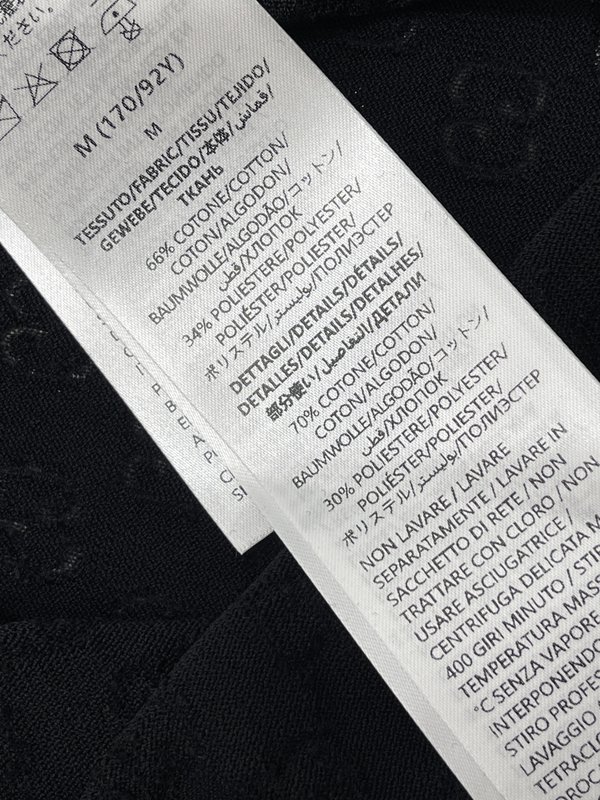 ください。
M (170/92Y)
M
TESSUTO/FABRIC/TISSU/TEJIDO/
GEWEBE/TECIDO/本体/قماش/
ТКАНЬ
66% COTONE/COTTON/
COTON/ALGODON/
BAUMWOLLE/ALGODÃO/コットン/
قطن/ХЛОПОК
34% POLIESTERE/POLYESTER/
POLIÉSTER/POLYESTER/
ポリエステル/بوليستر/ПОЛИЭСТЕР
DETTAGLI/DETAILS/DÉTAILS/
DETALLES/DETAILS/DETALHES/
部分使い/التفاصيل/ДЕТАЛИ
70% COTONE/COTTON/
COTON/ALGODON/
BAUMWOLLE/ALGODÃO/コットン/
قطن/ХЛОПОК
30% POLIESTERE/POLYESTER/
POLIÉSTER/POLYESTER/
ポリエステル/بوليستر/ПОЛИЭСТЕР
NON LAVARE / LAVARE
SEPARATAMENTE / LAVARE IN
SACCHETTO DI RETE / NON
TRATTARE CON CLORO / NON
USARE ASCIUGATRICE /
CENTRIFUGA DELICATA
400 GIRI MINUTO /
TEMPERATURA
°C SENZA VAPORE
INTERPONENDO
STIRO
LAVAGGIO